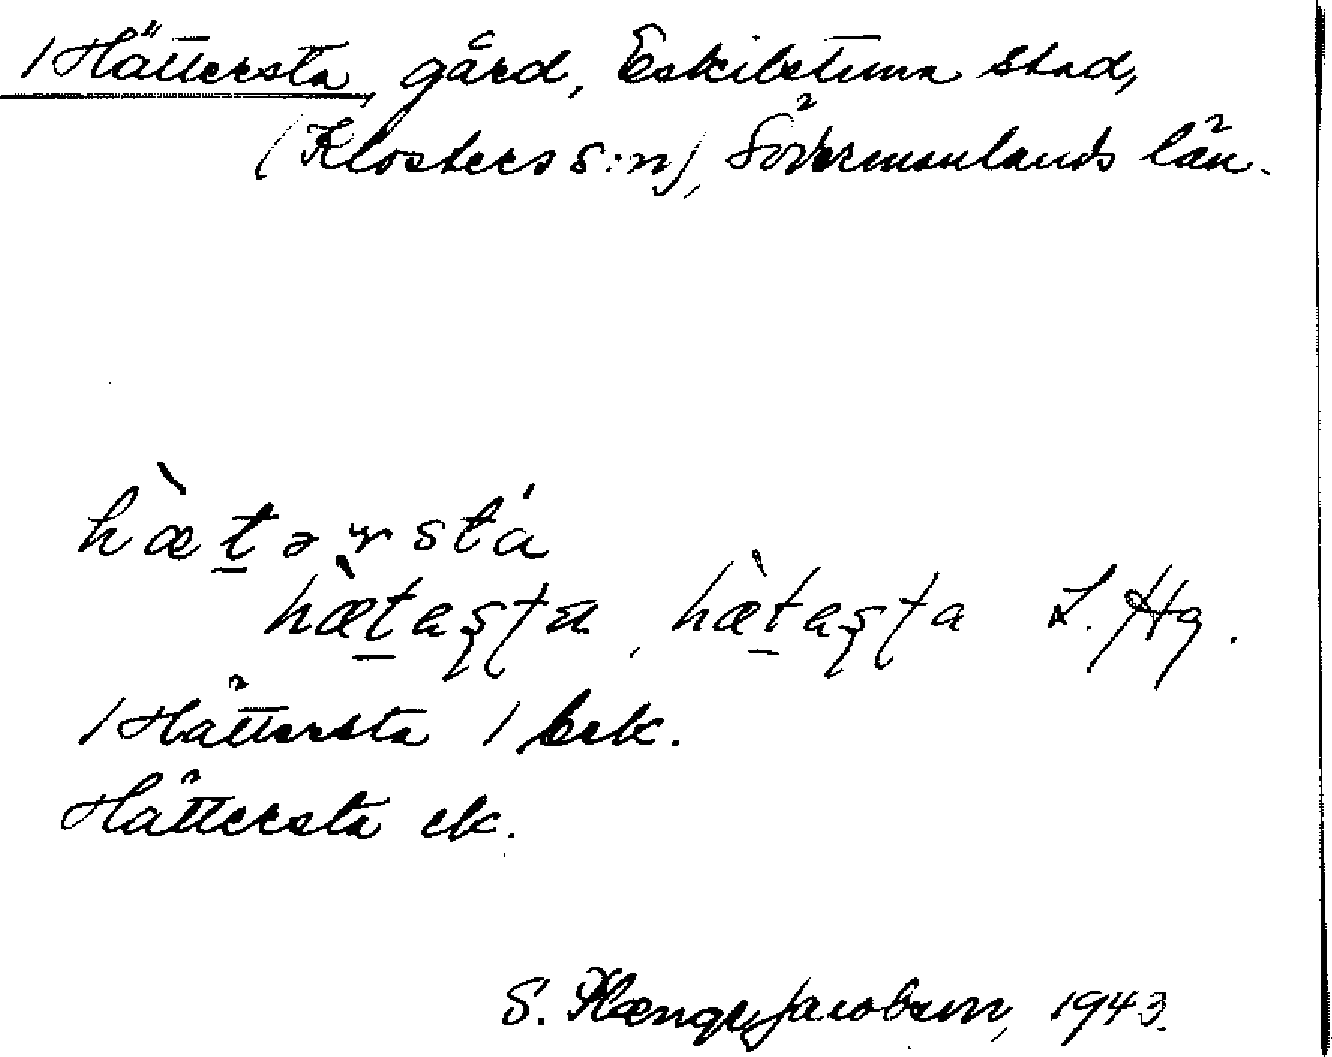 Hättersta, gård, Eskilstuna stad,
(Klosters s:n), Södermanlands län.
hæ̀t̲ərstá
hæ̀t̲aʂʈa, hæ̀t̲aʂʈa L. Hg.
Hättersta bek.
Hättersta ek.
S. 1943.